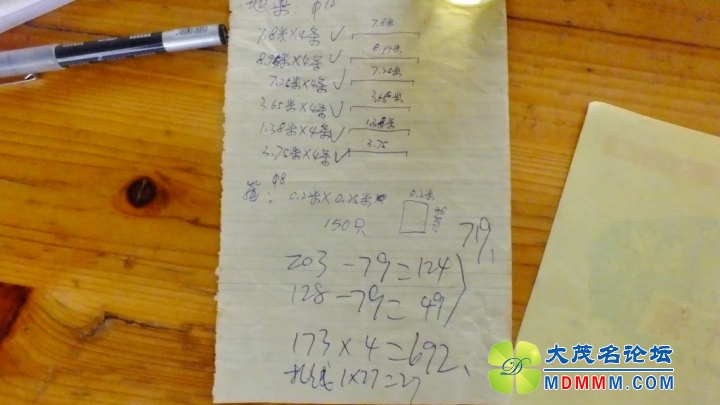 地梁 φ12
7.8米×4条 7.8米
8.95米×4条 8.95米
7.25米×4条 7.25米
3.65米×4条 3.65米
1.38米×4条 1.38米
3.75米×4条 3.75
φ8
0.2米×0.25米 0.2米
150只
719
203-79=124
128-79=49
173×4=692
扎线1×27=27
大茂名论坛
MDMMM.COM